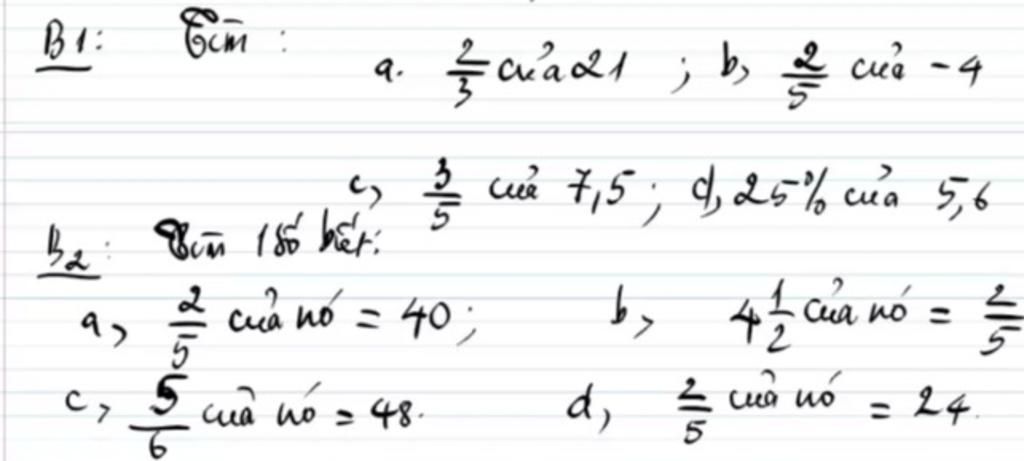 B1: Tìm :
a. 2/3 của 21 ; b, 2/5 của -4
c, 3/5 của 7,5 ; d, 25% của 5,6
B2: Tìm 1 số biết:
a, 2/5 của nó = 40 ; b, 4 1/2 của nó = 2/5
c, 5/6 của nó = 48. d, 2/5 của nó = 24.